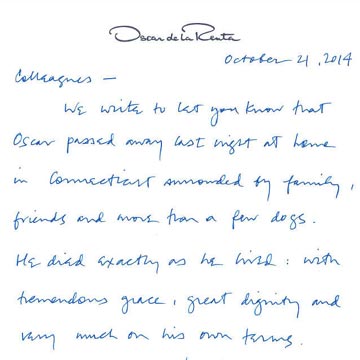 Oscar de la Renta
October 21, 2014
Colleagues —
We write to let you know that
Oscar passed away last night at home
in Connecticut surrounded by family,
friends and more than a few dogs.
He died exactly as he lived: with
tremendous grace, great dignity and
very much on his own terms.